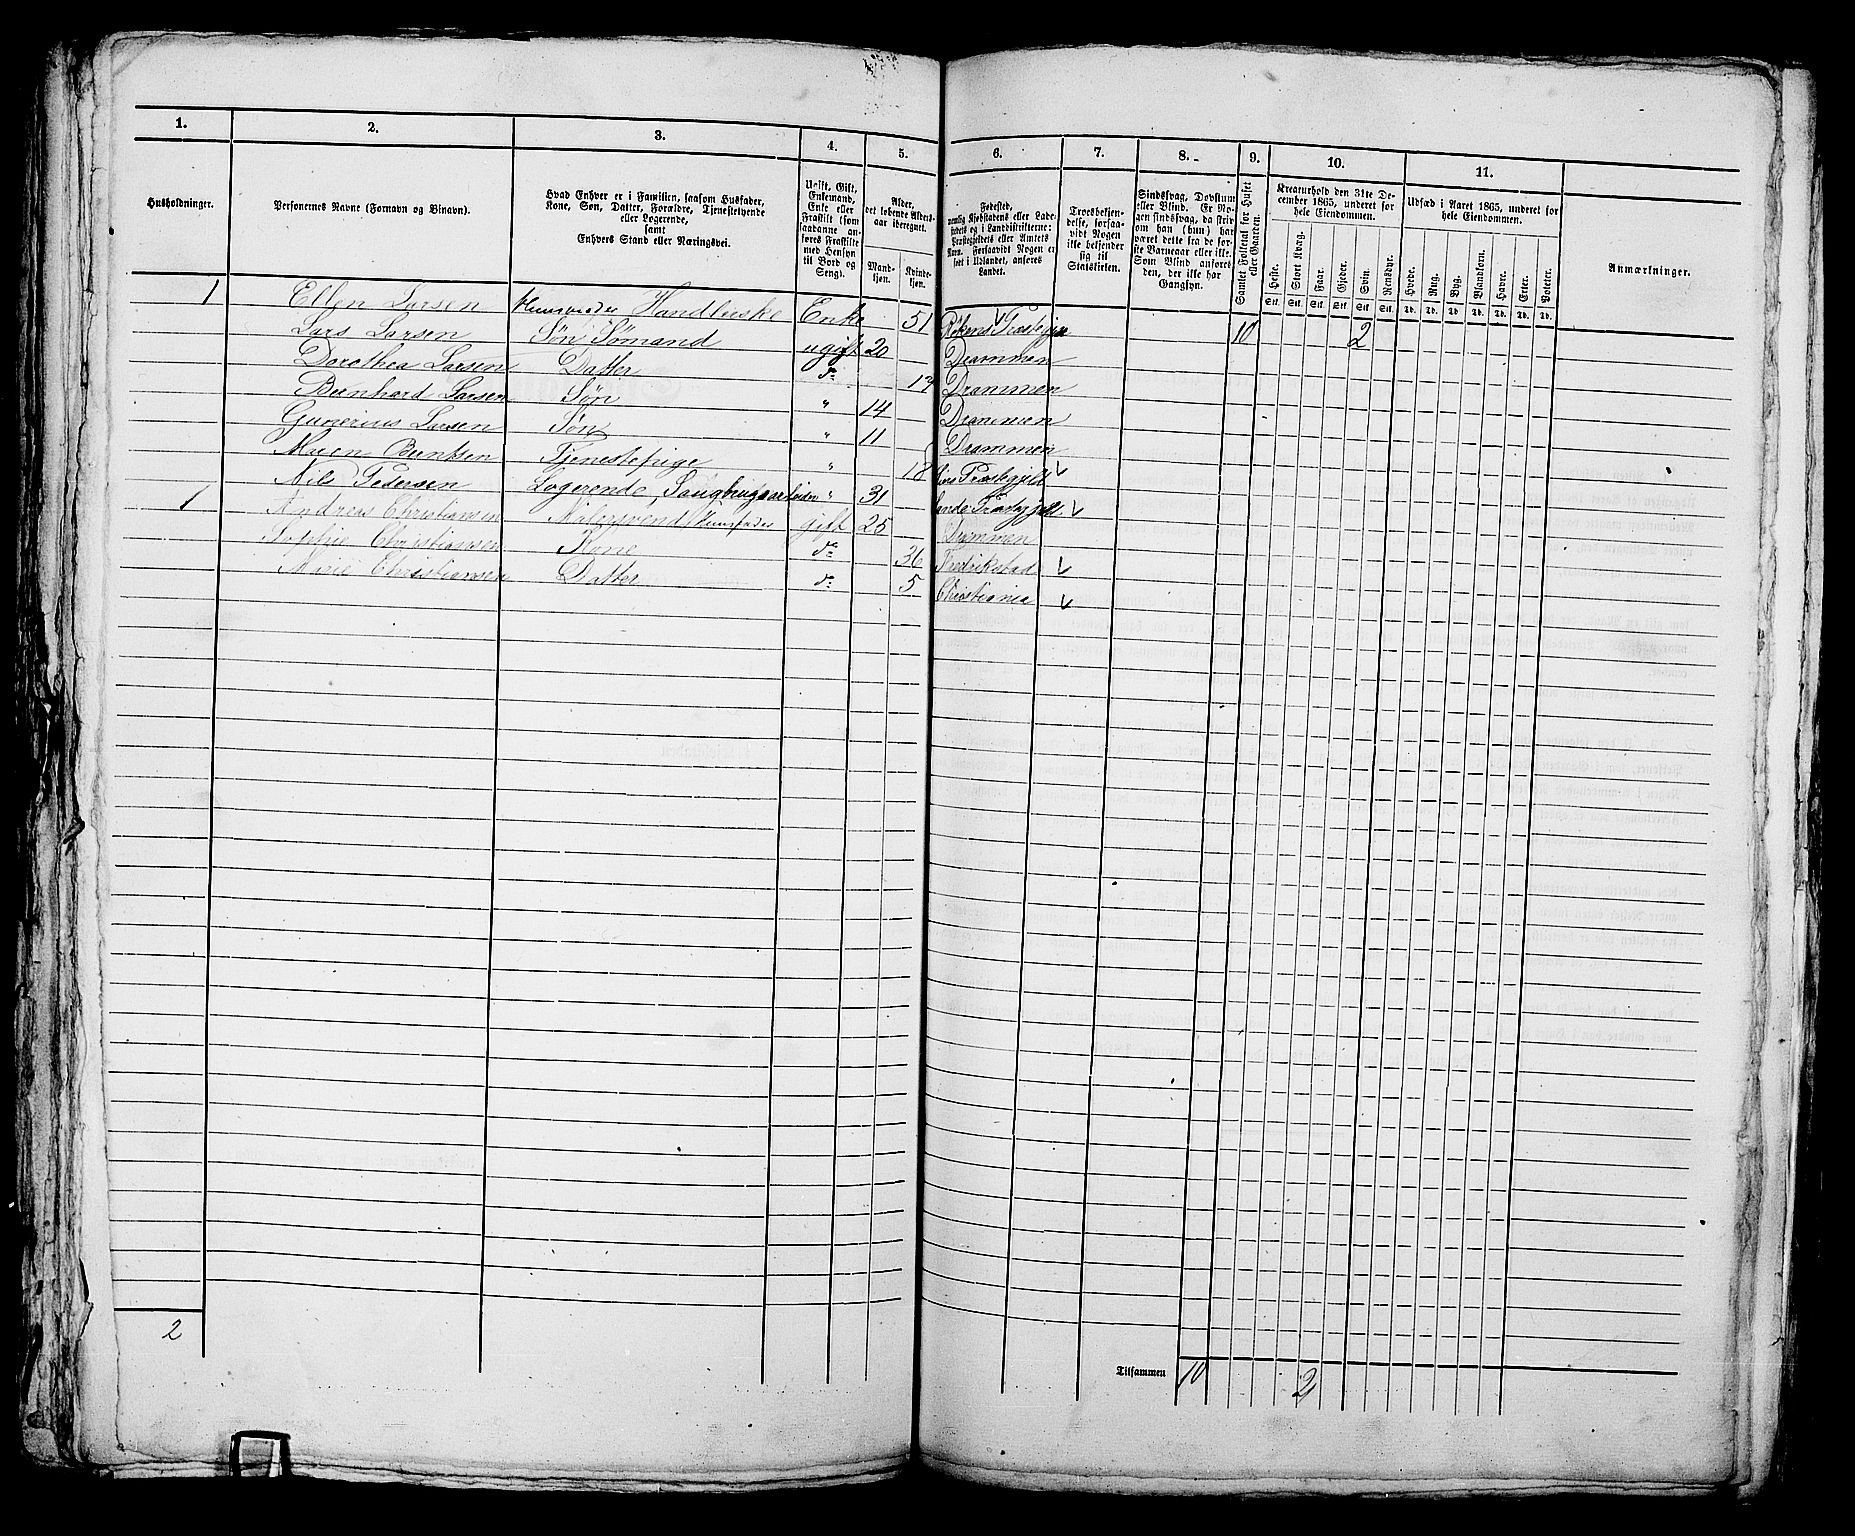 1. 2. 3. 4. 5. 6. 7. 8. 9. 10. 11.
Husholdninger.
Personernes Navne (Fornavn og Binavn).
Hvad Enhver er i Familien, saasom Husfader,
Kone, Søn, Datter, Forældre, Tjenestetyende
eller Logerende,
samt
Enhvers Stand eller Næringsvei.
Ugift, Gift,
Enkemand,
Enke eller
Fraskilt (som
saadanne an-
føres Fraskilte
med Hensyn
til Bord og
Seng).
Alder,
det løbende Alders-
aar iberegnet.
Mand-
kjøn.
Kvinde-
kjøn.
Fødested,
nemlig Kjøbstadens eller Lade-
stedets og i Landdistrikterne:
Præstegjeldets eller Amtets
Navn. Forsaavidt Nogen er
født i Udlandet, anføres
Landet.
Troesbekjen-
delse, forsaa-
vidt Nogen
ikke bekjender
sig til
Statskirken.
Sindssvag, Døvstum
eller Blind. Er No-
gen sindssvag, da skriv
om han (hun) har
været dette fra de før-
ste Barneaar eller ikke.
Som Blind anføres
den, der ikke har
Gangsyn.
Samlet Folketal for Huset
eller Gaarden.
Kreaturhold den 31te De-
cember 1865, underet for
hele Eiendommen.
Heste. Stort Kvæg. Faar. Gjeder. Svin. Rensdyr.
Stk. Stk. Stk. Stk. Stk. Stk.
Udsæd i Aaret 1865, underet for
hele Eiendommen.
Hvede. Rug. Byg. Blandkorn. Havre. Erter. Poteter.
Td. Td. Td. Td. Td. Td. Td.
Anmærkninger.
1 Ellen Larsen Handlerske Enke 51 Røkens 10 2
Lars Larsen Søn Sømand ugift 20 Drammen
Dorothea Larsen Datter do 17 Drammen
Bernhard Larsen Søn " 14 Drammen
Gunerius Larsen Søn " 11 Drammen
Berntsen Tjenestepige " 18 Præstegjeld
Nils Pedersen Logerende, Saugbrugsarbeider " 31 Sande Præstegjeld
1 Andreas Christiansen Malersvend Husfader gift 25 Drammen
Sophie Christiansen Kone do 36 Fredrikstad
Marie Christiansen Datter do 5 Christiania
2
Tilsammen 10 2